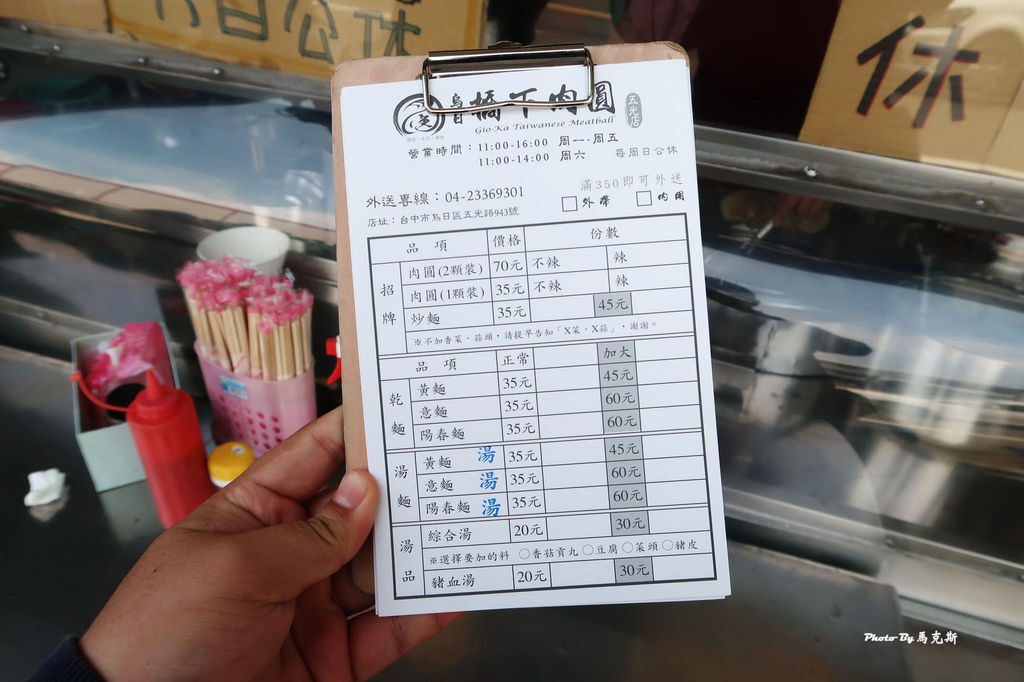 日公休
休
烏日橋下肉圓 五光店
Gio-Ka Taiwanese Meatball
營業時間：11:00-16:00 周一-周五
11:00-14:00 周六 每周日公休
滿350即可外送
外送專線：04-23369301 □外帶 □內用
店址：台中市烏日區五光路943號
品項 價格 份數
招牌
肉圓(2顆裝) 70元 不辣 辣
肉圓(1顆裝) 35元 不辣 辣
炒麵 35元 45元
※不加香菜、蒜頭，請提早告知「X菜、X蒜」，謝謝。
品項 正常 加大
乾麵
黃麵 35元 45元
意麵 35元 60元
陽春麵 35元 60元
湯麵
黃麵 湯 35元 45元
意麵 湯 35元 60元
陽春麵 湯 35元 60元
湯品
綜合湯 20元 30元
※選擇要加的料 ○香菇貢丸○豆腐○菜頭○豬皮
豬血湯 20元 30元
Photo By 馬克斯